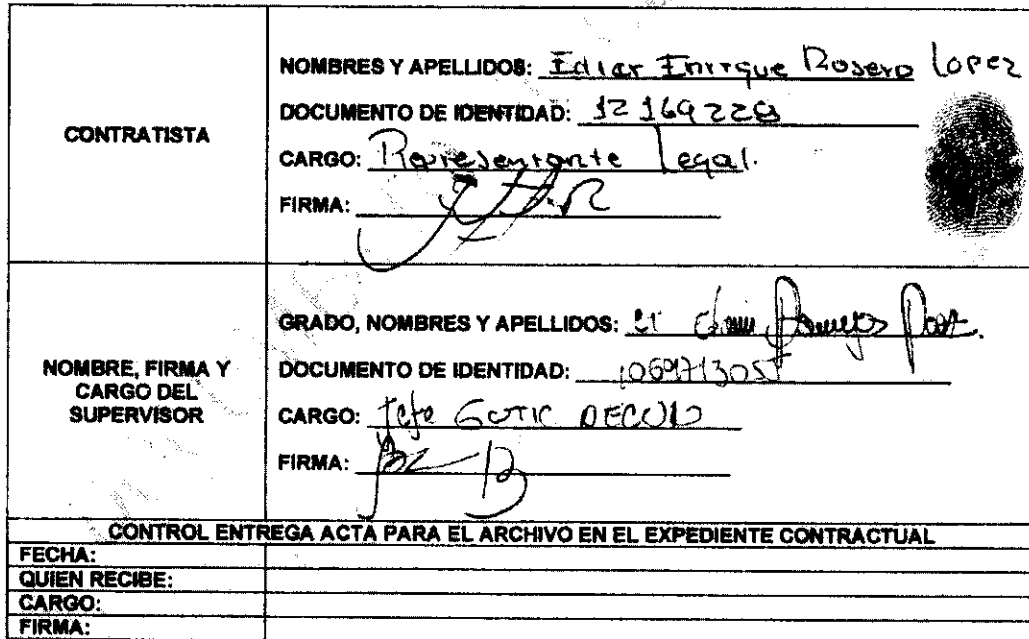 CONTRATISTA
NOMBRES Y APELLIDOS: Ediar Enrique Rosero Lopez
DOCUMENTO DE IDENTIDAD: 12169228
CARGO: Representante Legal.
FIRMA:
NOMBRE, FIRMA Y
CARGO DEL
SUPERVISOR
GRADO, NOMBRES Y APELLIDOS:
DOCUMENTO DE IDENTIDAD:
CARGO: Jefe GUTIC DECUN
FIRMA:
CONTROL ENTREGA ACTA PARA EL ARCHIVO EN EL EXPEDIENTE CONTRACTUAL
FECHA:
QUIEN RECIBE:
CARGO:
FIRMA: